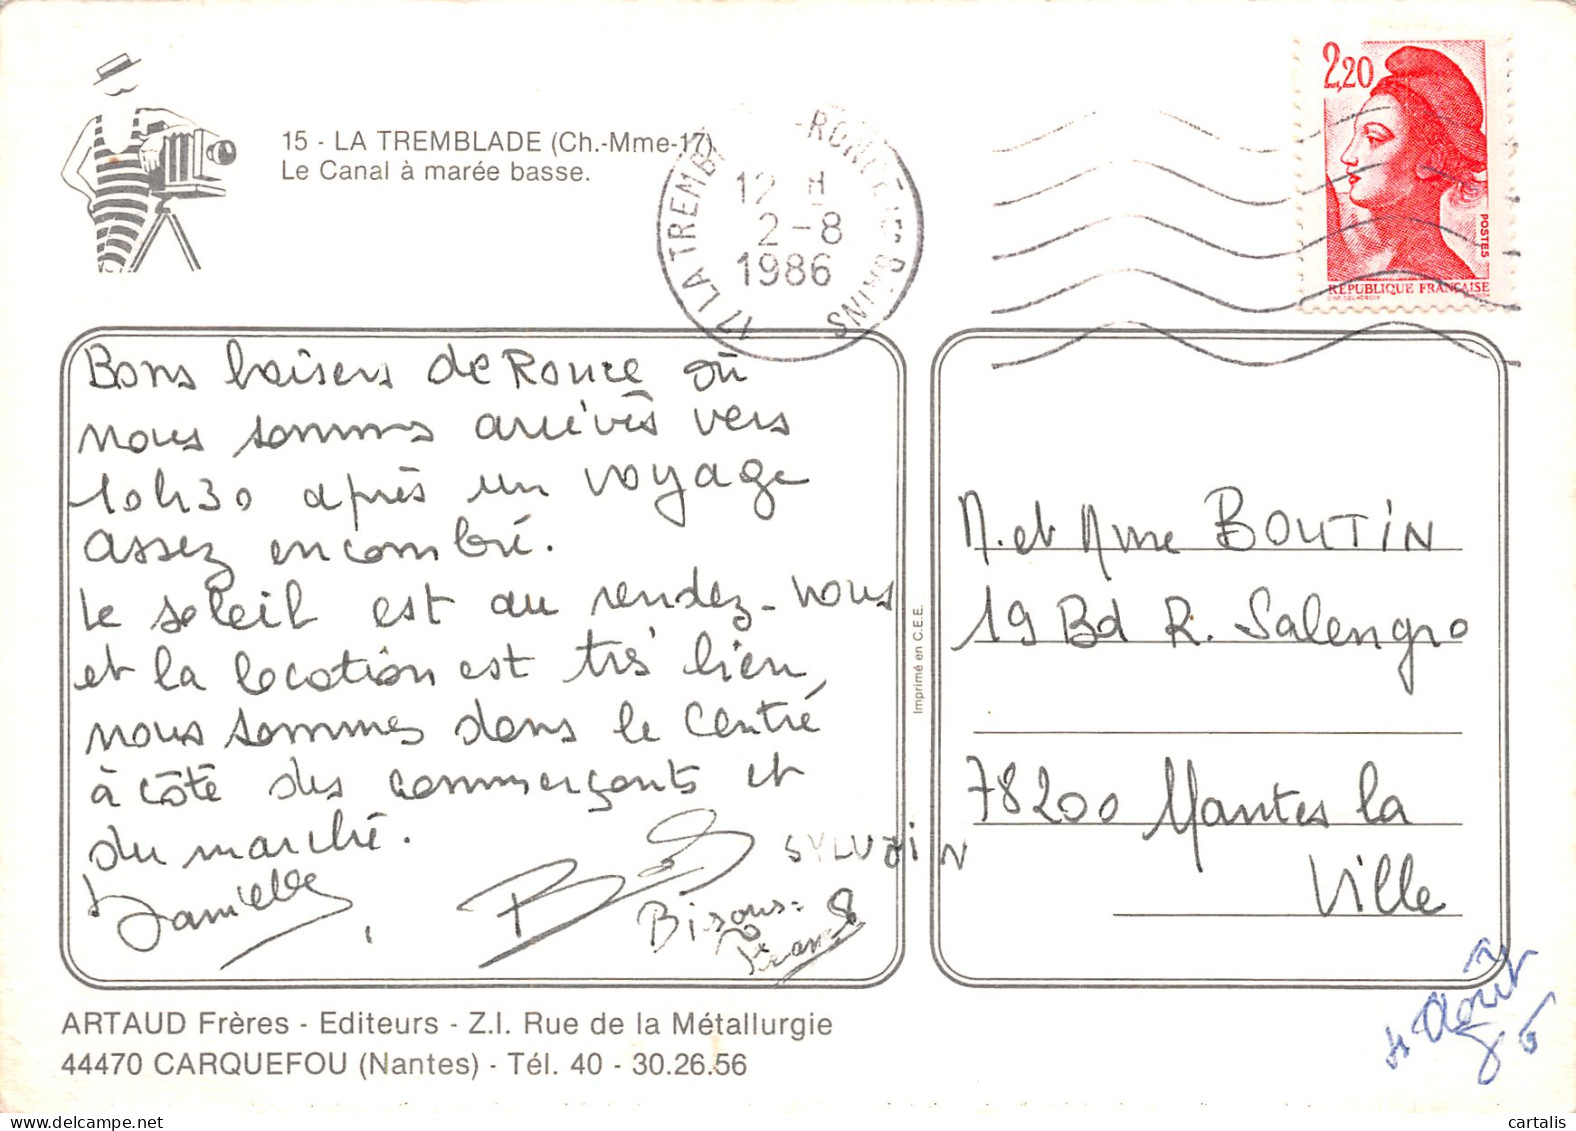 15 - LA TREMBLADE (Ch.-Mme-17).
Le Canal à marée basse.
17 LA TREMB -RONCE LES BAINS
12 H
2-8
1986
2,20
POSTES
REPUBLIQUE FRANÇAISE
Bons baisers de Ronce où
nous sommes arrivés vers
10h30 après un voyage
assez encombré.
Le soleil est au rendez-vous
et la location est très bien,
nous sommes dans le Centre
à côté des commerçants et
du marché.
Danielle,
SYLVAIN
Bisous
Imprimé en C.E.E.
M. et Mme BOUTIN
19 Bd R. Salengro
78200 Mantes la
Ville
4 Août
86
ARTAUD Frères - Editeurs - Z.I. Rue de la Métallurgie
44470 CARQUEFOU (Nantes) - Tél. 40 - 30.26.56
cartalis